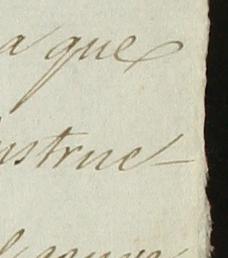 a que
nstruc-